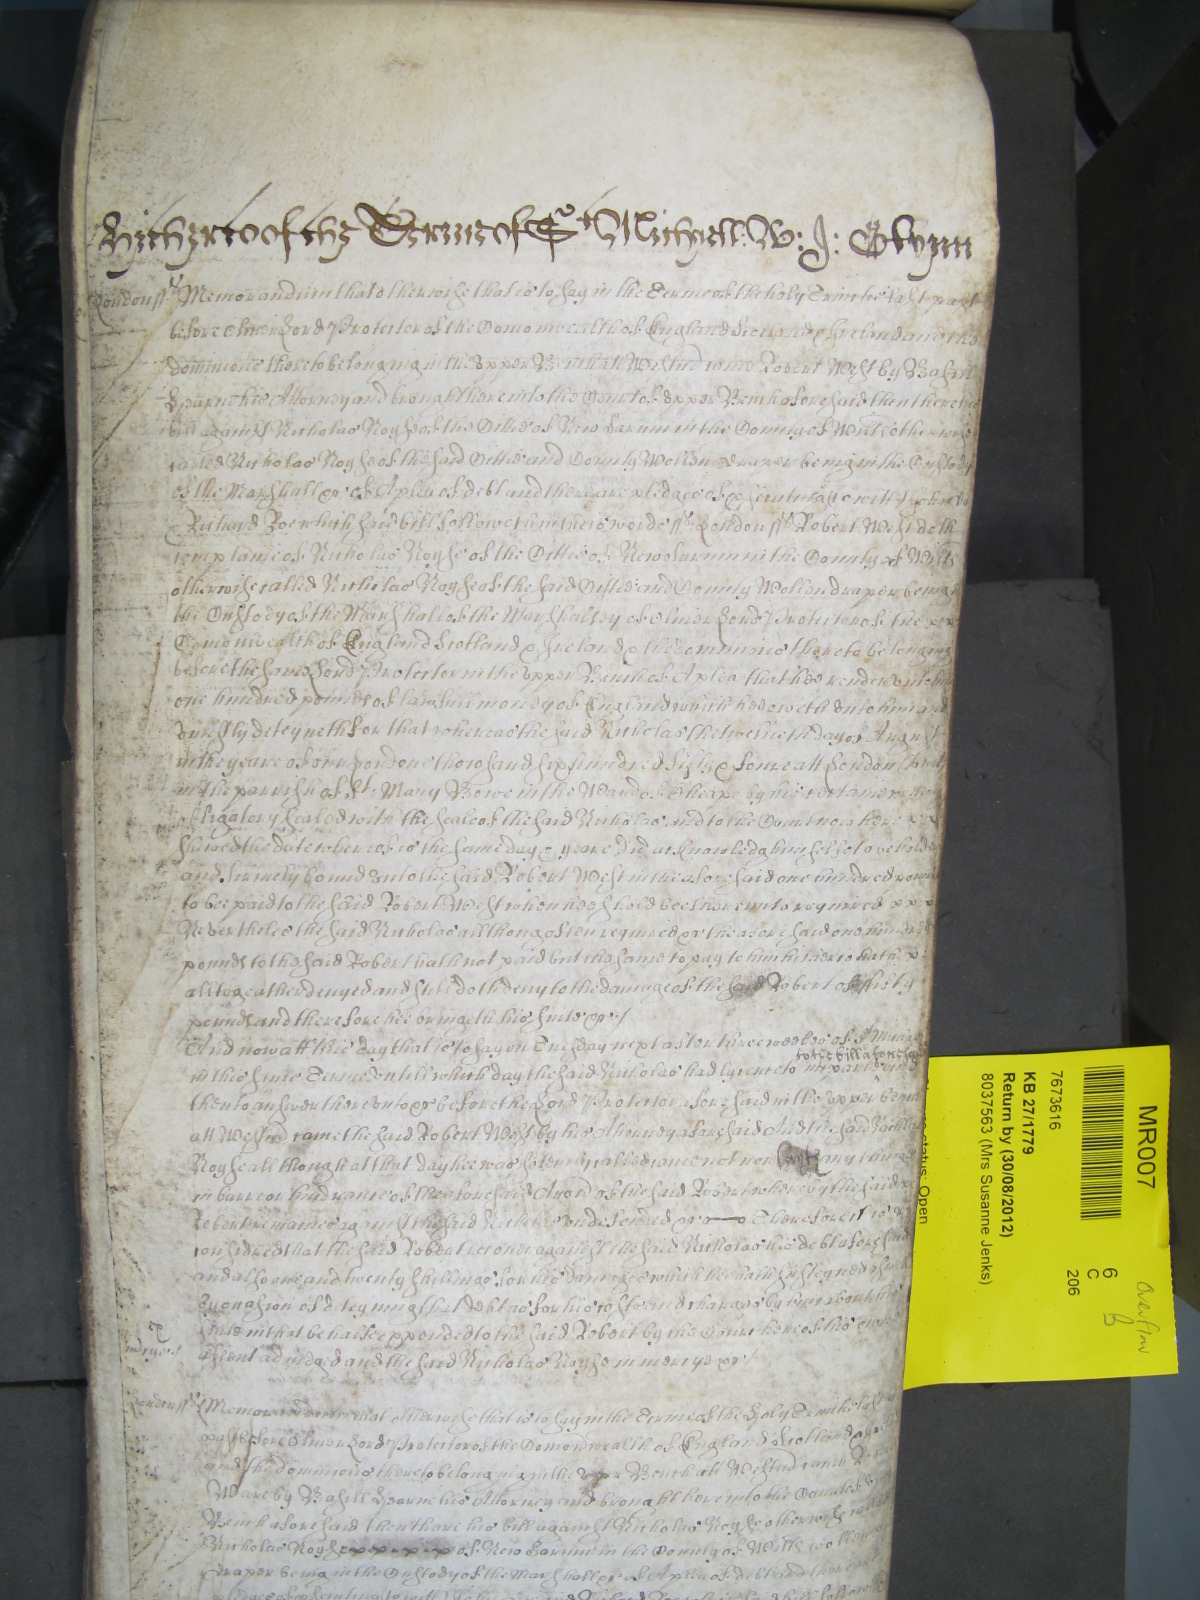 Hitherto of the Terme of St Michaell W: J: Glynn
London ss Memorandum that otherwise that is to say in the Terme of the holy Trinitie last past
before Oliver Lord Protector of the Comonwealth of England Scotland & Ireland and the
dominions thereto belonging in the Upper Bench att Westmr came Robert West by Basill
Hearne his Attorney and brought here into the Court of Upper Bench aforesaid then there his
bill against Nicholas Noyse of the Cittie of New Sarum in the County of Wilts otherwise
called Nicholas Noyse of the said Cittie and County Wollen draper being in the Custody
of the Marshall &c of A plea of debt and there are pledges of &c to witt John Doe
& Richard Roe which said bill followeth in theis words ss London ss Robert West doth
complaine of Nicholas Noyse of the Cittie of New Sarum in the County of Wilts
otherwise called Nicholas Noyse of the said Cittie and County Wollen draper being in
the Custody of the Marshall of the Marshalsey of Oliver Lord Protector of the
Comonwealth of England Scotland & Ireland & the dominions thereto belonging
before the same Lord Protector in the Upper Bench of A plea that hee render unto him
one hundred pounds of lawfull money of England which hee oweth unto him and
unjustly deteyneth For that whereas the said Nicholas the twelveth day of August
in the yeare of our Lord one thousand six hundred fifty & foure att London
in the parrish of St Mary Bowe in the Ward of Cheape by his certaine writing
obligatory sealed with the seale of the said Nicholas and to the Court now here
shewed the date whereof is the same day & yeare did acknowledg himselfe to be holden
and firmely bound unto the said Robert West in the aforesaid one hundred pounds
to bee paid to the said Robert West when hee should bee thereunto required
Neverthelesse the said Nicholas although often required &c the aforesaid one hundred
pounds to the said Robert hath not paid but the same to pay to him hitherto hath
altogeather denyed and still doth deny to the damage of the said Robert of fifty
pounds and therefore hee bringeth his suite &c
And now att this day that is to say on Tuesday next after three weekes of St Michaell
to the bill aforesaid
in this same Terme untill which day the said Nicholas had lycence to imparle and
then to answer thereunto &c before the Lord Protector aforesaid in the upper bench
att Westmr came the said Robert West by his Attorney aforesaid And the said Nicholas
Noyse although at that day hee was solemnly called came not nor any thing
in barre or hindrance of the aforesaid Accon of the said Robert whereby the said
Robert remaines against the said Nicholas undefended &c Therefore it is
considred that the said Robert recover against the said Nicholas his debt aforesaid
and also one and twenty shillings for his damages which hee hath susteyned
by occasion of deteyning that debt as for his costs and charges by him about his
suite in that behalfe expended to the said Robert by the Court here of his owne
assent adiudged and the said Nicholas Noyse in mercye &c
London ss Memorandum that otherwise that is to say in the Terme of the Holy Trinitie last
past before Oliver Lord Protector of the Comonwealth of England Scotland & Ireland
and the dominions thereto belonging in the upper Bench att Westmr came
Ware by Basill Hearne his Attorney and brought here into the Court of Upper
Bench aforesaid then there his bill against Nicholas Noyse otherwise called
Nicholas Noyse of New Sarum in the County of Wilts wollen
draper being in the Custody of the Marshall &c of A plea of debt and there
MR007
6
C
206
7673616
KB 27/1779
Return by (30/08/2012)
8037563 (Mrs Susanne Jenks)
status: Open
Overflow